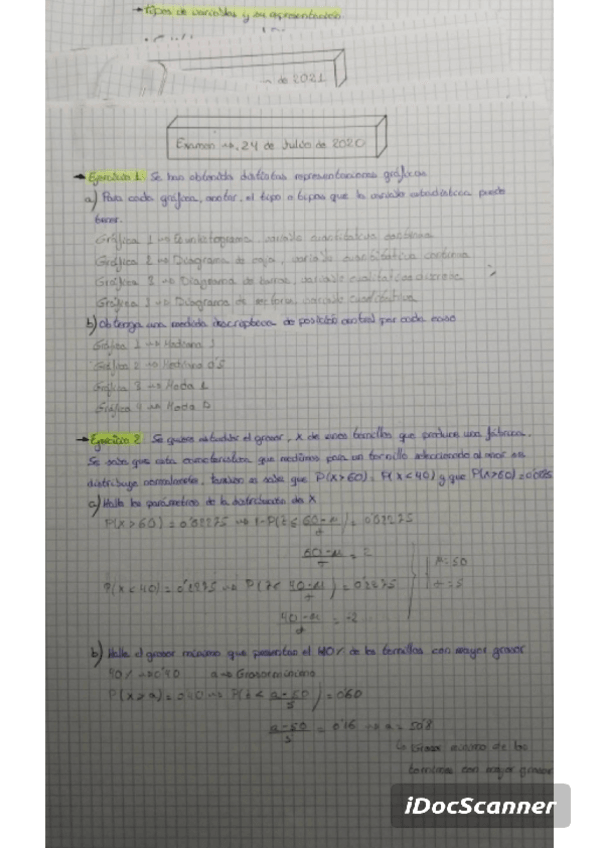 → Tipos de variables y su representación
de 2021
Examen → 24 de Julio de 2020
→ Ejercicio 1. Se han obtenido distintas representaciones gráficas
a) Para cada gráfica, anotar, el tipo o tipos que la variable estadística puede
tener.
Gráfica 1 → variable cuantitativa continua
Gráfica 2 → Diagrama de caja, variable cuantitativa continua
Gráfica 3 → Diagrama de barras, variable
Gráfica → Diagrama de sectores, variable cualitativa
b) Obtenga una medida descriptiva de posición central par cada caso
Gráfica 1 → Mediana
Gráfica 2 → Mediana 0'5
Gráfica 3 → Moda
Gráfica 4 → Moda D
→ Ejercicio 2. Se quiere estudiar el grosor, X de unos tornillos que produce una fábrica.
Se sabe que esta característica que medimos para un tornillo seleccionado al azar se
distribuye normalmente, también se sabe que P(X>60) = P(X<40) y que P(X>60)=
a) Halla los parámetros de la distribución de X
P(X>60) = 0'02275 → 1-P(Z≤ 60-μ/σ) = 0'02275
60-μ/σ = 2
μ=50
P(X<40) = 0'02275 → P(Z< 40-μ/σ) = 0'02275
σ=5
40-μ/σ = -2
b) Halle el grosor mínimo que presentan el 40% de los tornillos con mayor grosor
40% → 0'40 a → Grosor mínimo
P(X>a) = 0'40 → P(Z< a-50/5) = 0'60
a-50/5 = 0'16 → a = 50'8
↳ Grosor mínimo de los
tornillos con mayor grosor
iDocScanner